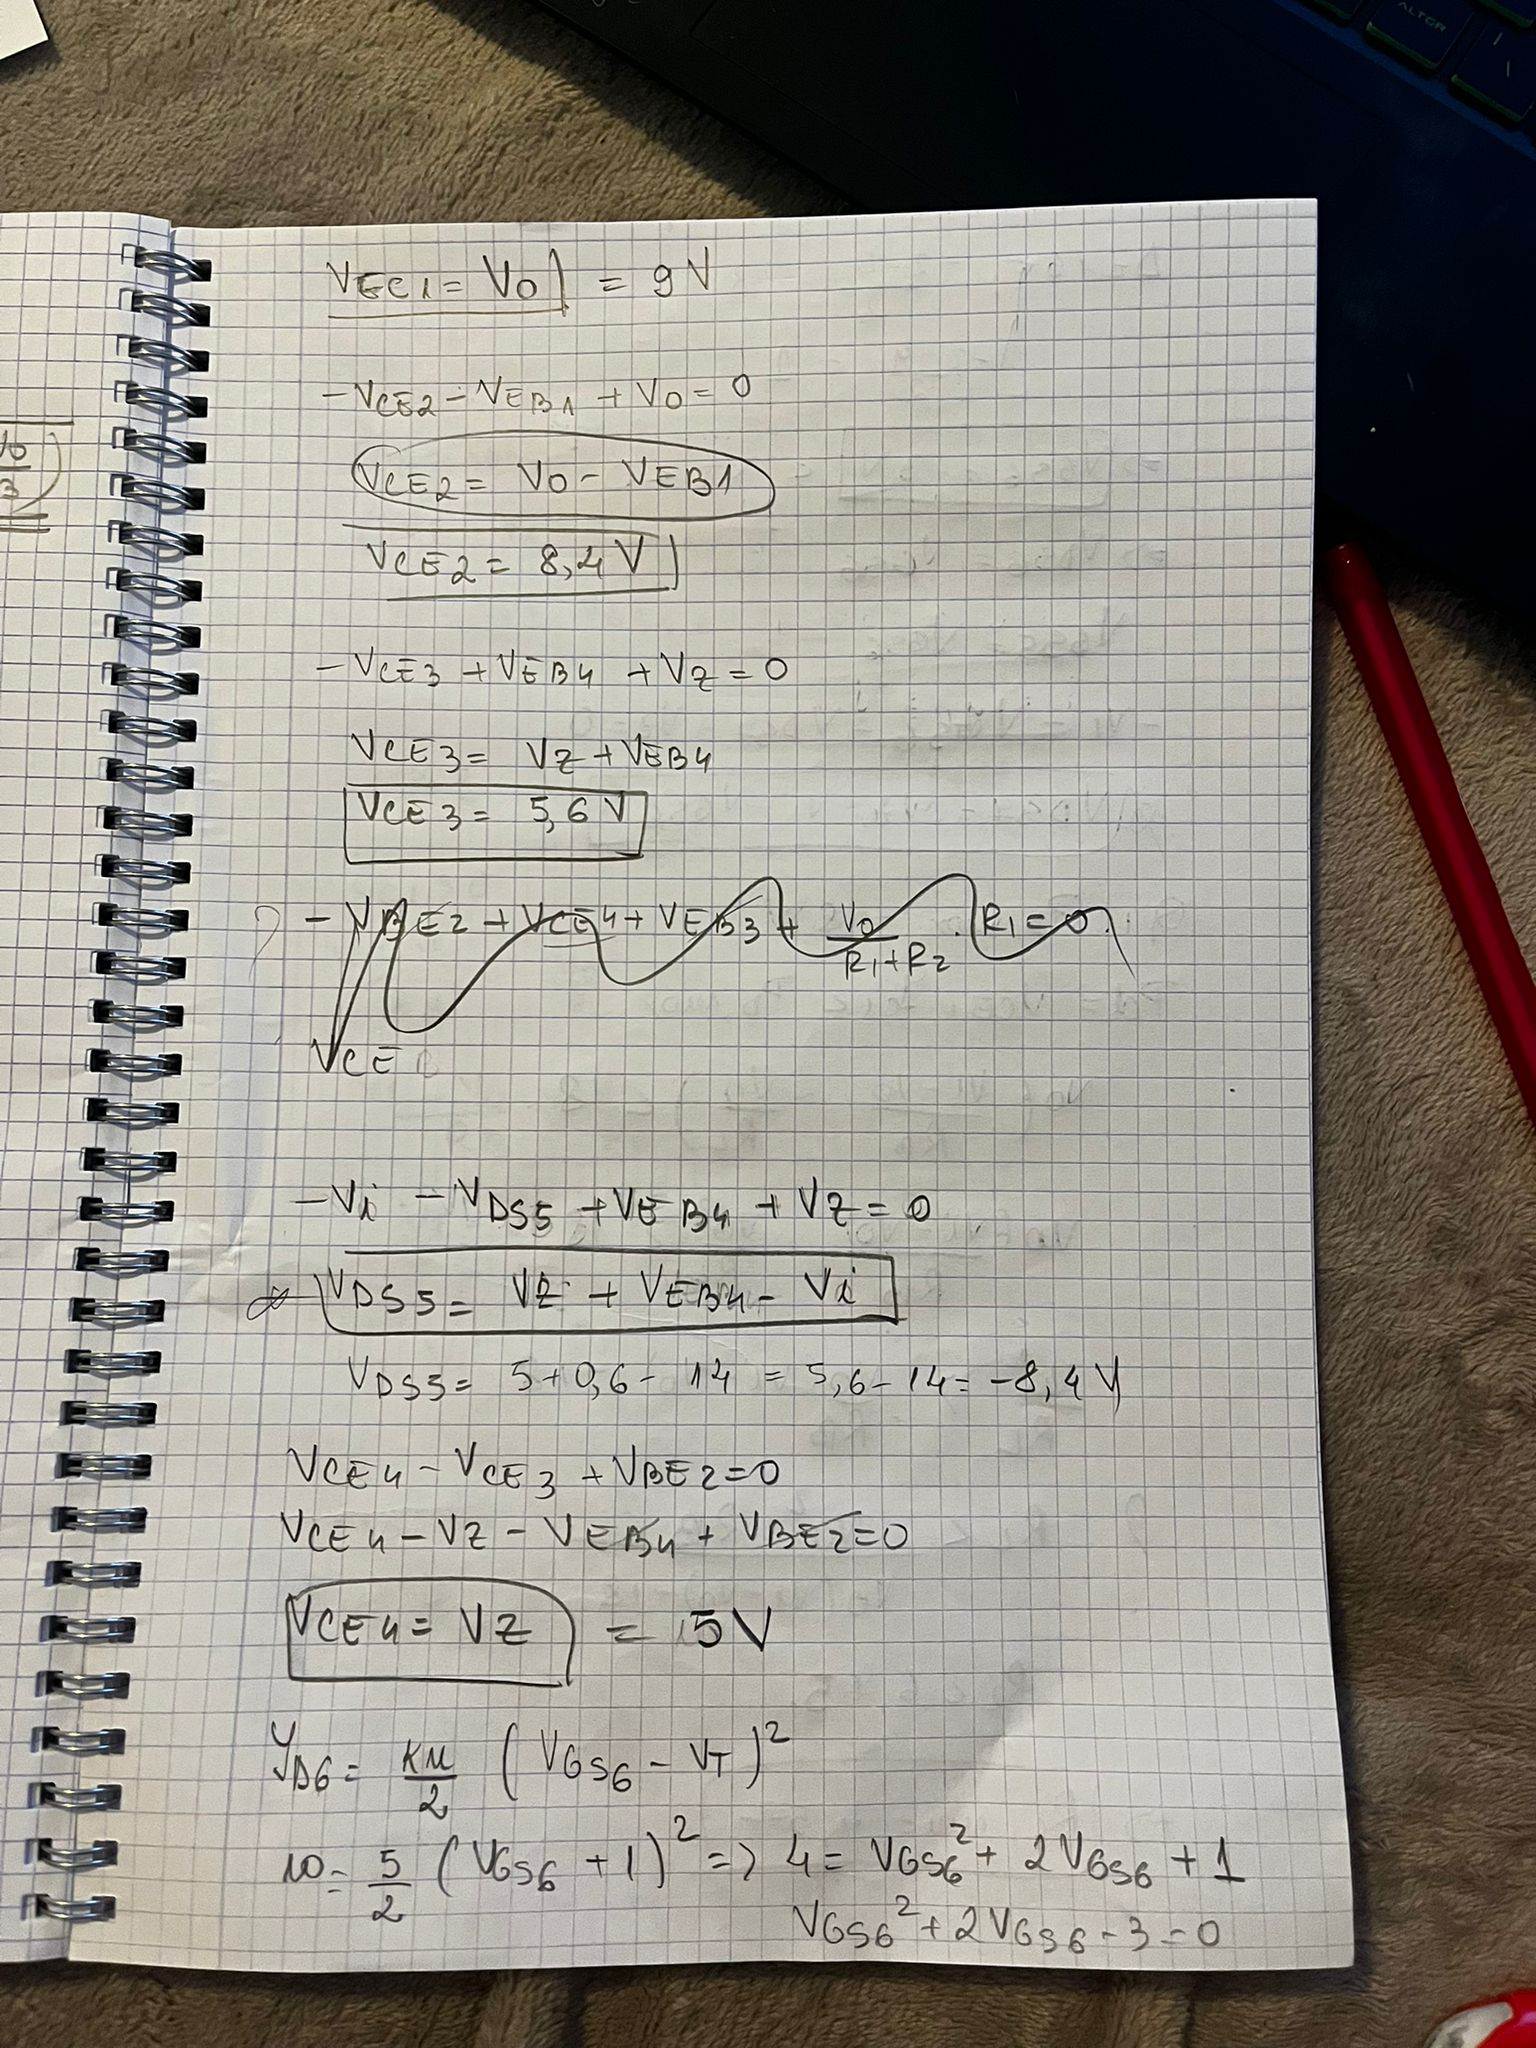 ALTGR
VEC1 = VO = 9V
-VCE2 - VEB1 + VO = 0
VCE2 = VO - VEB1
VCE2 = 8,4 V
VO
3
-VCE3 + VEB4 + VZ = 0
VCE3 = VZ + VEB4
VCE3 = 5,6 V
- VBE2 + VCE4 + VEB3 + VO/(R1+R2) · R1 = 0
VCE
-Vi - VDS5 + VEB4 + VZ = 0
VDS5 = VZ + VEB4 - Vi
VDS5 = 5+0,6 - 14 = 5,6 - 14 = -8,4 V
VCE4 - VCE3 + VBE2 = 0
VCE4 - VZ - VEB4 + VBE2 = 0
VCE4 = VZ = 5V
JD6 = KM/2 (VGS6 - VT)²
10 = 5/2 (VGS6 + 1)² => 4 = VGS6² + 2VGS6 + 1
VGS6² + 2VGS6 - 3 = 0